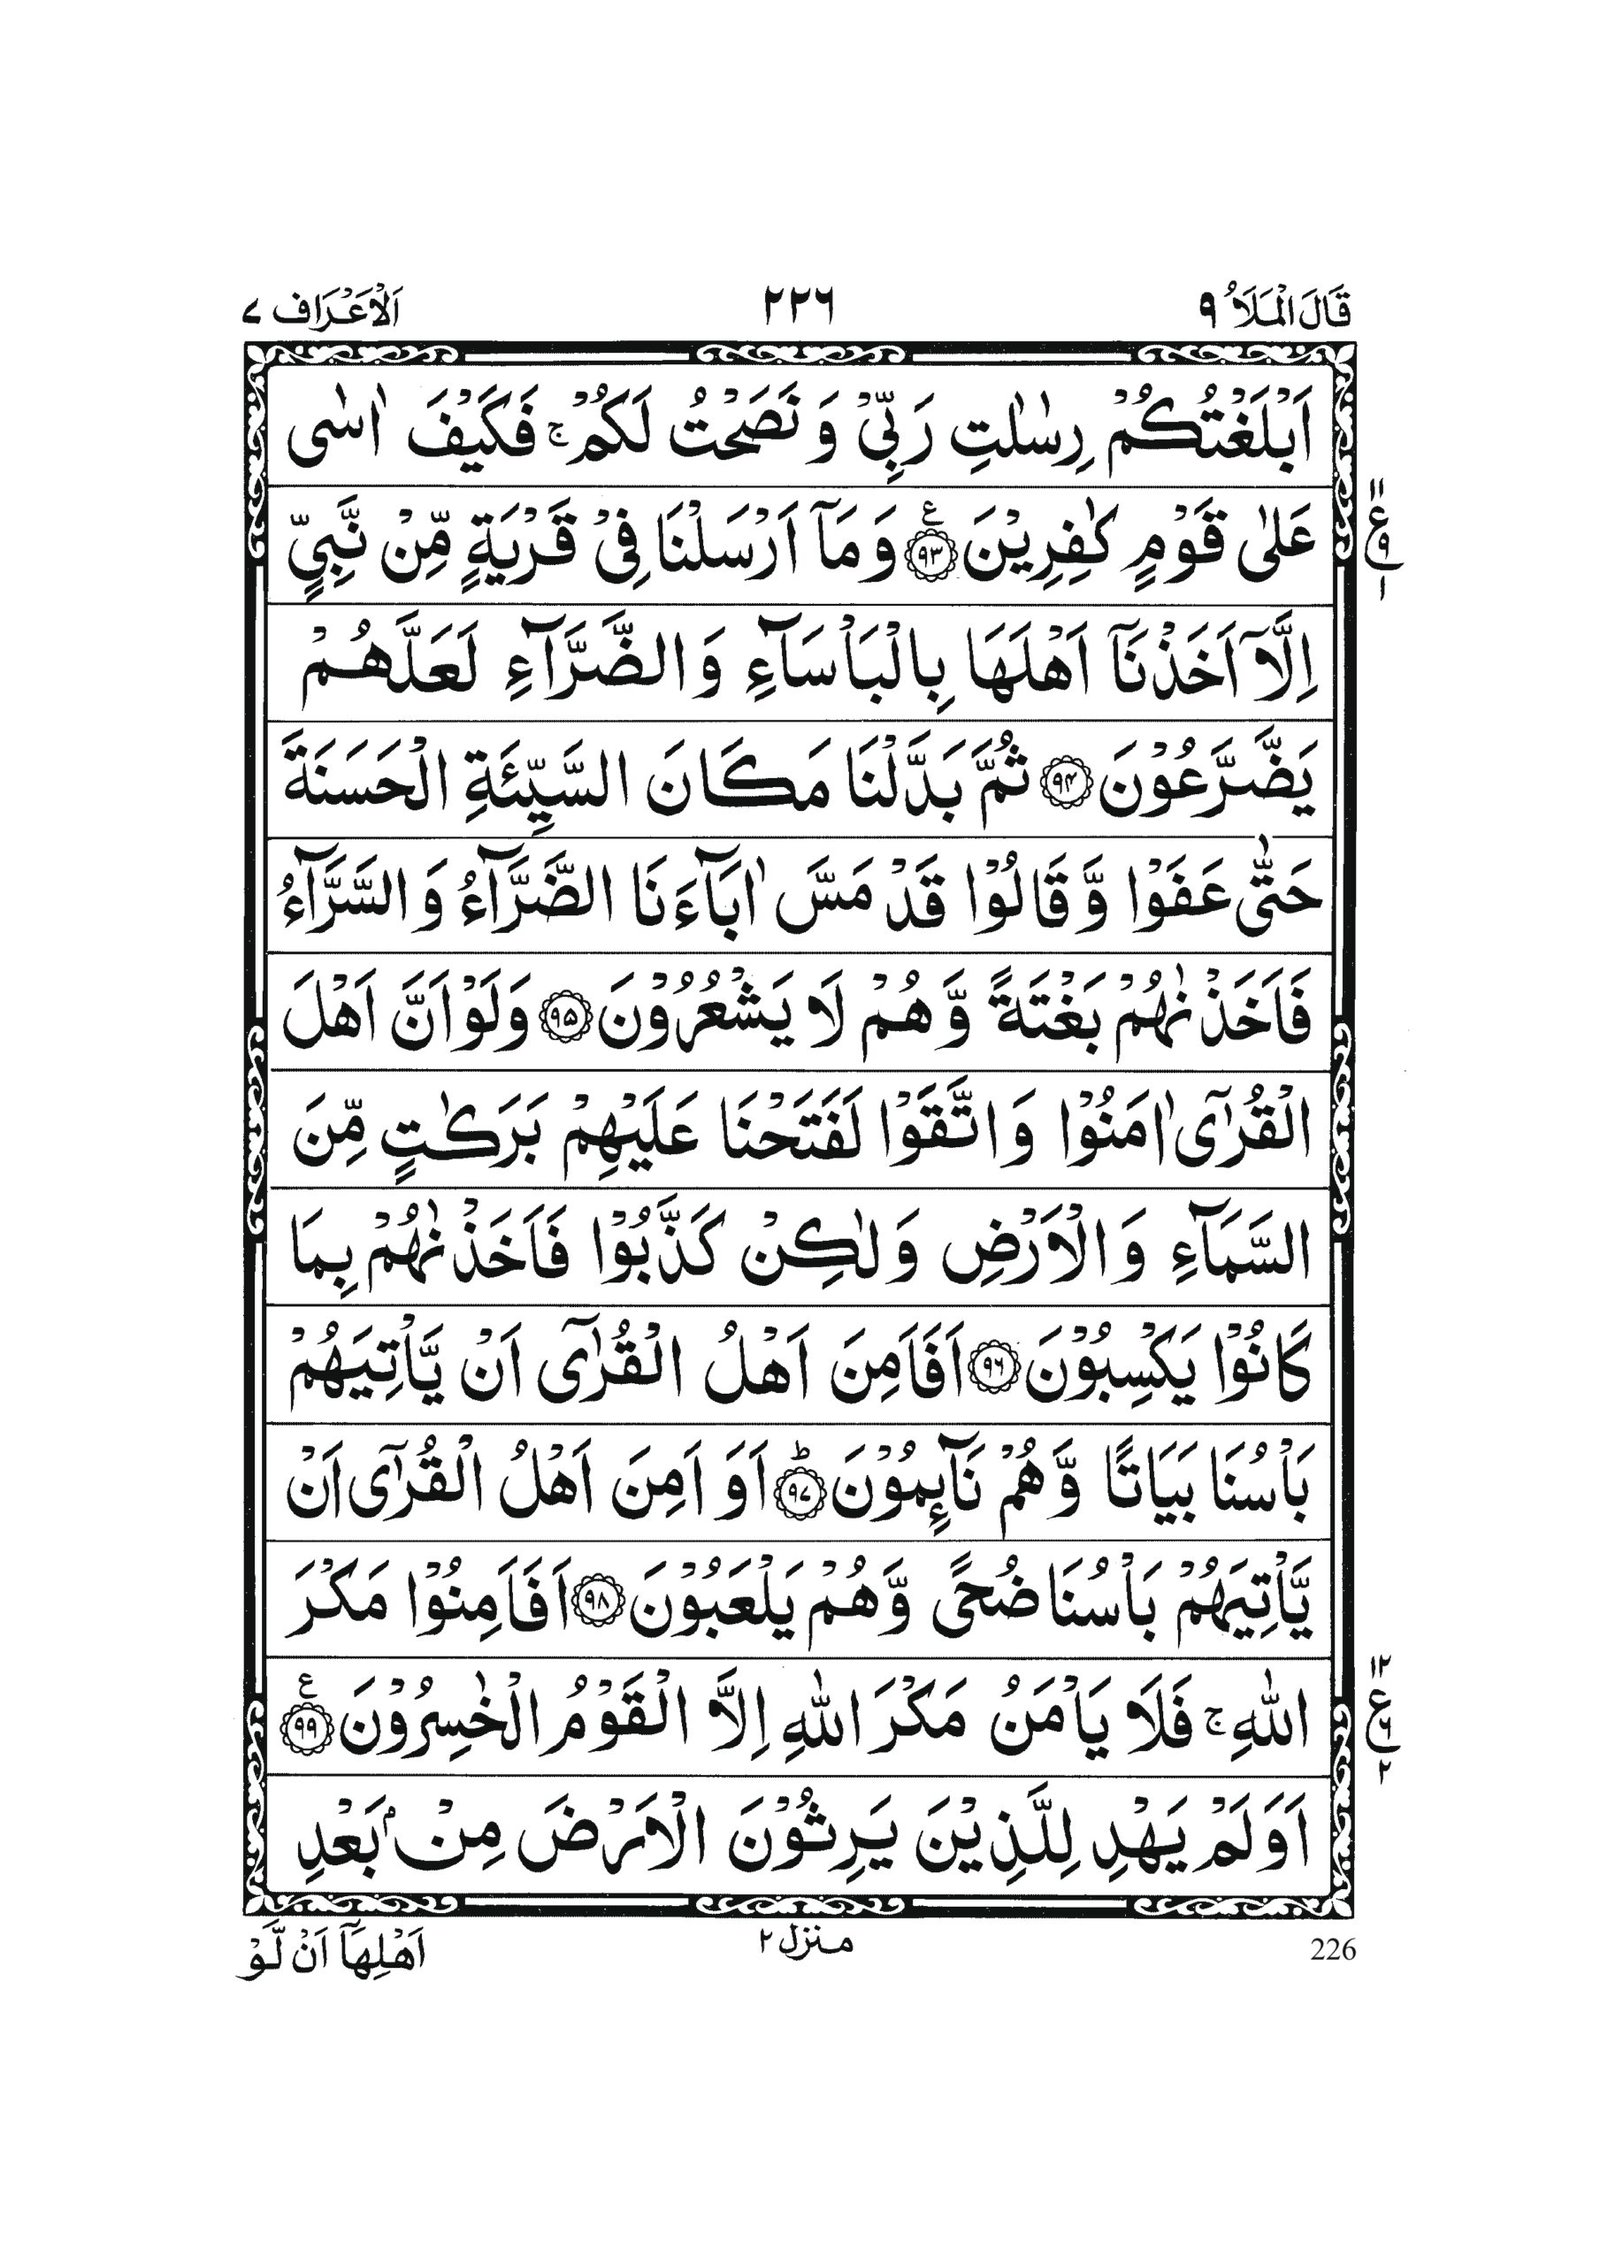 قَالَ الْمَلَاُ ٩ ٢٢٦ اَلْاَعْرَاف ٧
اَبْلَغْتُكُمْ رِسٰلٰتِ رَبِّيْ وَ نَصَحْتُ لَكُمْ ۚ فَكَيْفَ اٰسٰى
عَلٰى قَوْمٍ كٰفِرِيْنَ ﴿٩٣﴾ ع وَ مَاۤ اَرْسَلْنَا فِيْ قَرْيَةٍ مِّنْ نَّبِيٍّ
١١ ع ٩ ١
اِلَّاۤ اَخَذْنَاۤ اَهْلَهَا بِالْبَاْسَآءِ وَ الضَّرَّآءِ لَعَلَّهُمْ
يَضَّرَّعُوْنَ ﴿٩٤﴾ ثُمَّ بَدَّلْنَا مَكَانَ السَّيِّئَةِ الْحَسَنَةَ
حَتّٰى عَفَوْا وَّ قَالُوْا قَدْ مَسَّ اٰبَآءَنَا الضَّرَّآءُ وَ السَّرَّآءُ
فَاَخَذْنٰهُمْ بَغْتَةً وَّ هُمْ لَا يَشْعُرُوْنَ ﴿٩٥﴾ وَ لَوْ اَنَّ اَهْلَ
الْقُرٰۤى اٰمَنُوْا وَ اتَّقَوْا لَفَتَحْنَا عَلَيْهِمْ بَرَكٰتٍ مِّنَ
السَّمَآءِ وَ الْاَرْضِ وَ لٰكِنْ كَذَّبُوْا فَاَخَذْنٰهُمْ بِمَا
كَانُوْا يَكْسِبُوْنَ ﴿٩٦﴾ اَفَاَمِنَ اَهْلُ الْقُرٰۤى اَنْ يَّاْتِيَهُمْ
بَاْسُنَا بَيَاتًا وَّ هُمْ نَآئِمُوْنَ ﴿٩٧﴾ؕ اَوَ اَمِنَ اَهْلُ الْقُرٰۤى اَنْ
يَّاْتِيَهُمْ بَاْسُنَا ضُحًى وَّ هُمْ يَلْعَبُوْنَ ﴿٩٨﴾ اَفَاَمِنُوْا مَكْرَ
اللّٰهِ ۚ فَلَا يَاْمَنُ مَكْرَ اللّٰهِ اِلَّا الْقَوْمُ الْخٰسِرُوْنَ ﴿٩٩﴾ ع
١٢ ع ٦ ٢
اَوَ لَمْ يَهْدِ لِلَّذِيْنَ يَرِثُوْنَ الْاَرْضَ مِنْۢ بَعْدِ
226 منزل ٢ اَهْلِهَاۤ اَنْ لَّوْ